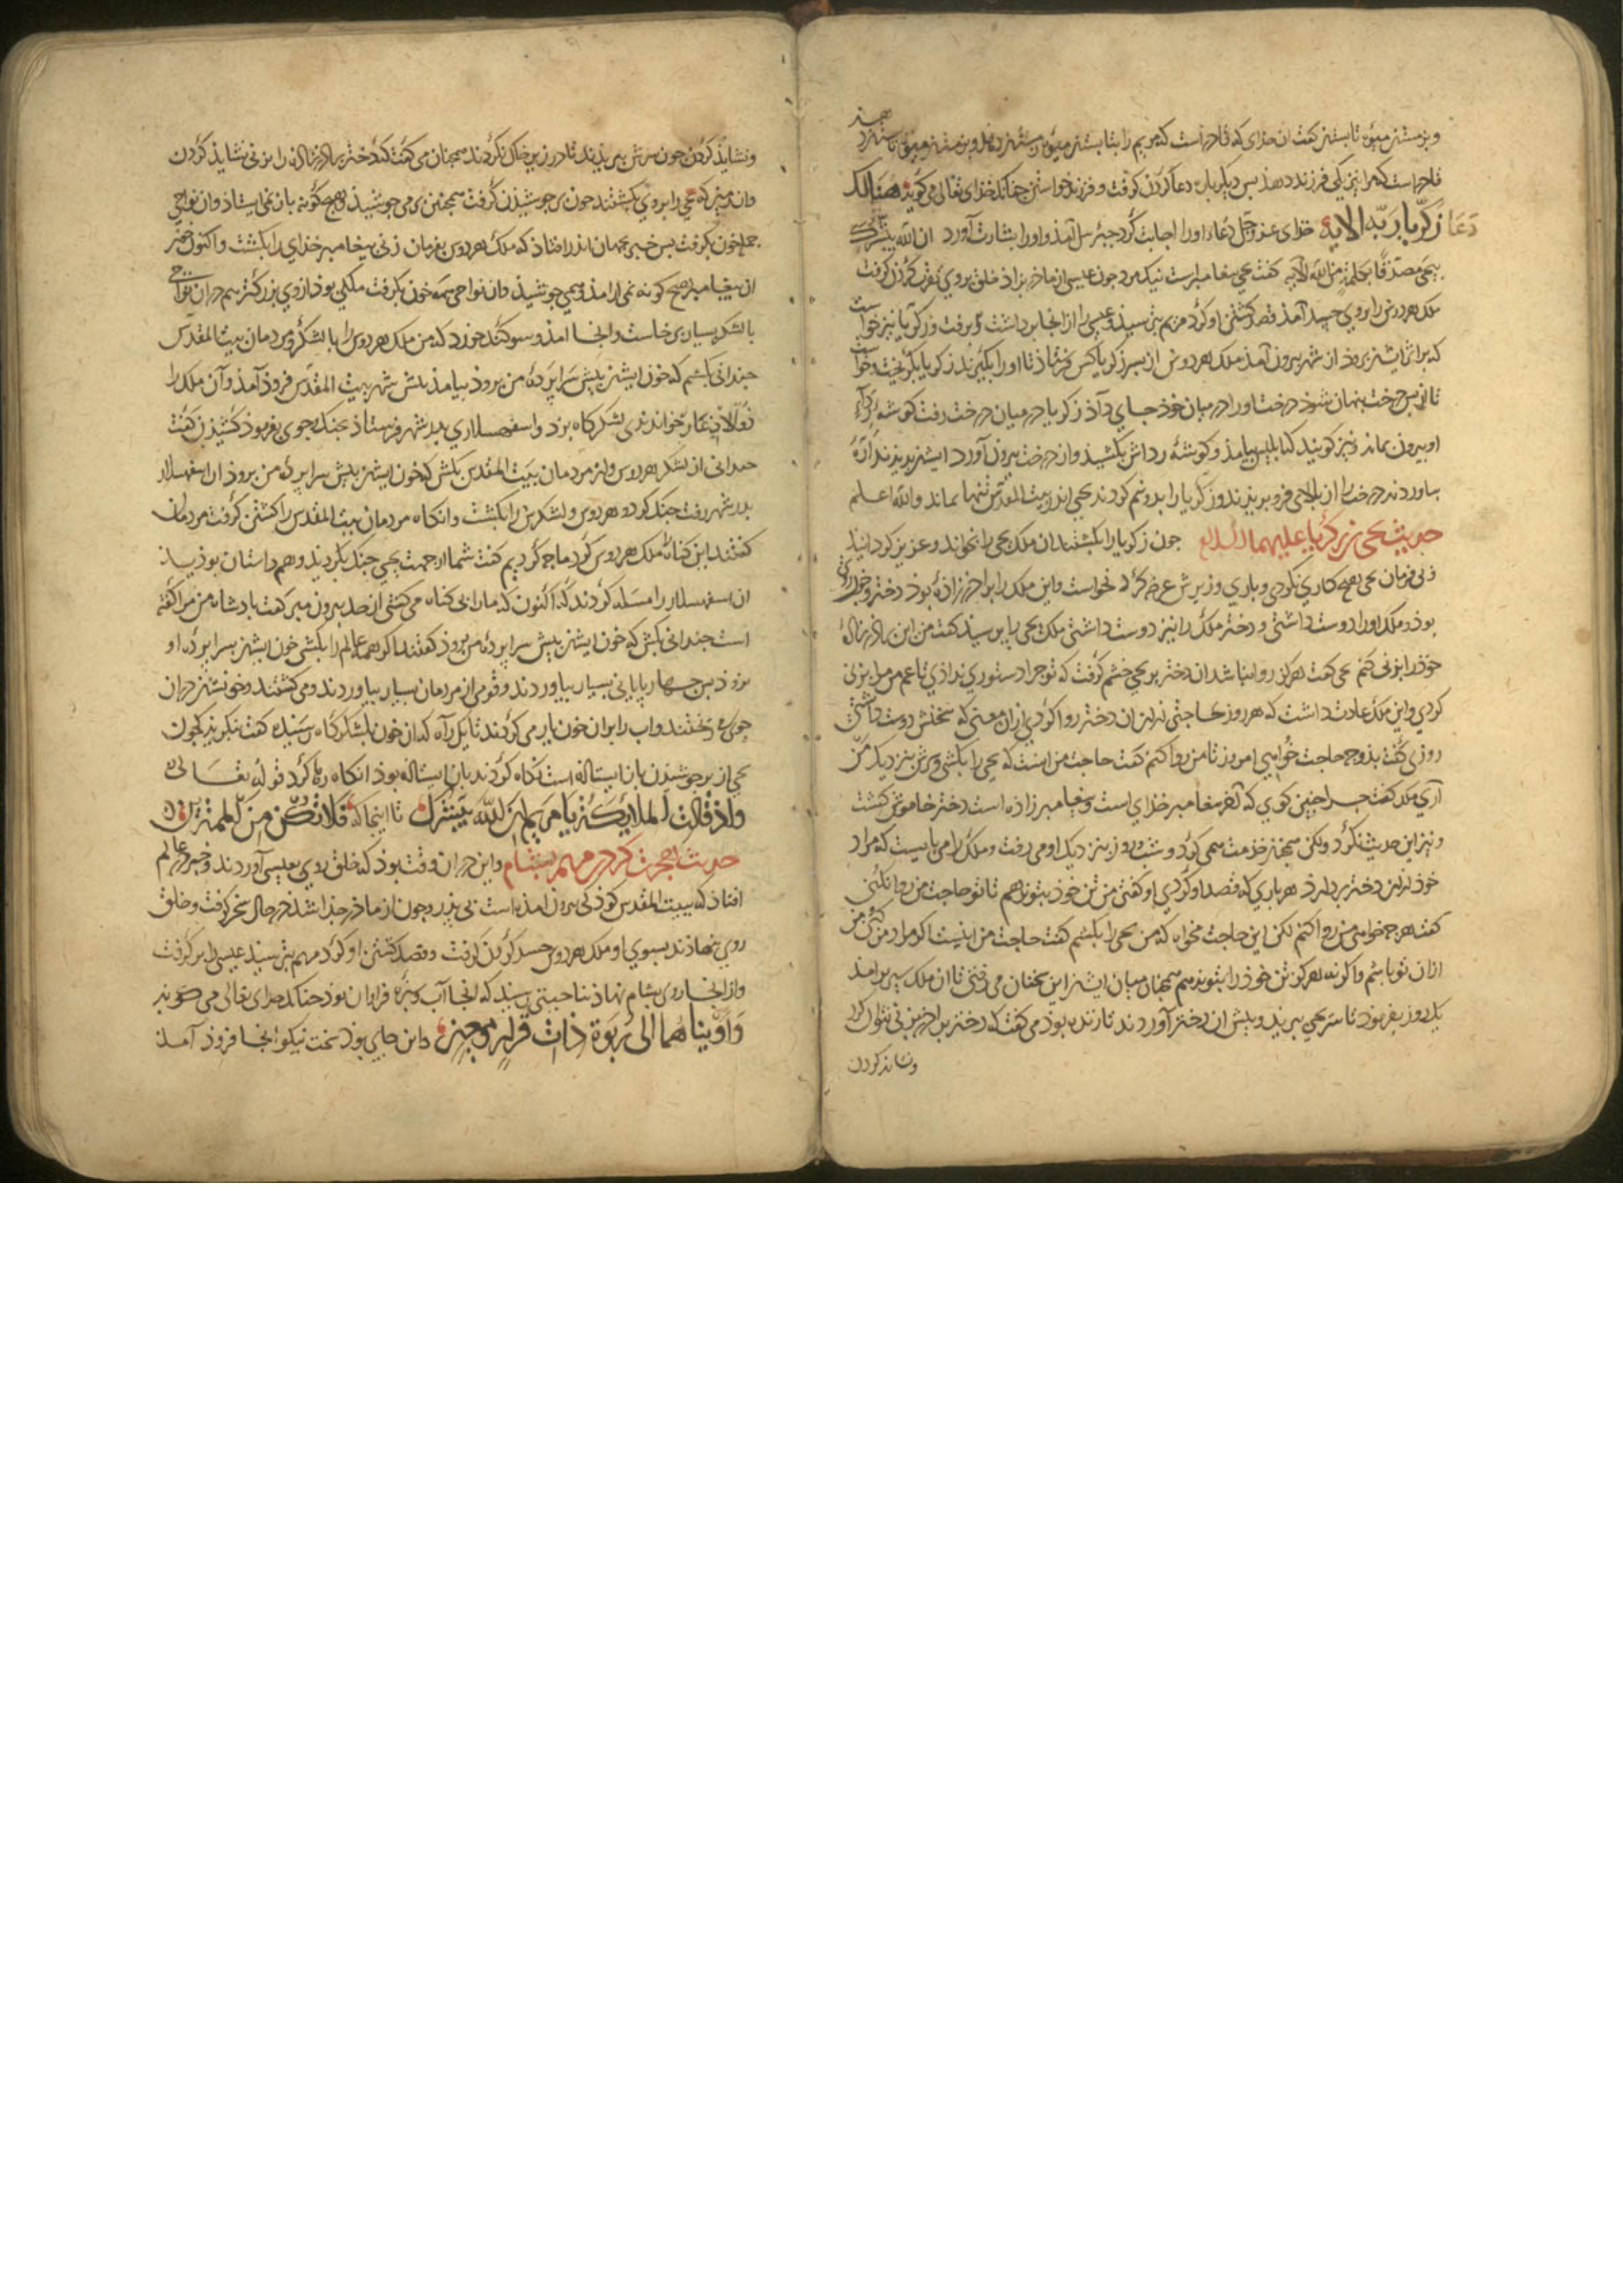 و بزمستن میوه تابستن کفت ان خذای که قادرست که مریم را بتابستن میوه زمستن دهد و بزمستن میوه تابستن دهد
قادرست که مرا بزرکی فرزند دهذ بس دیکر باره دعا کردن کرفت و فرزند خواستن جنانکه خذای تعالی می کوید هنالک
دعا زکریا ربه الایه خدای عز و جل دعاء اورا اجابت کرد جبرئیل آمذ و اورا بشارت آورد ان الله یبشرک
بیحیی مصدقا بکلمة من الله الایه کفت یحیی بیغامبرست نیک مرد جون عیسی از ماذر بزاذ خلق بروی کردن کرفت
ملک هردوس را بروی حسد آمذ قصد کشتن او کرد مریم بترسید و عیسی را از انجا برداشت و برفت و زکریا نیز خواست
که بر اثر ایشن بروذ از شهر بیرون آمذ ملک هردوس از بس زکریا کس فرستاذ تا اورا بکیرند زکریا بکریخت و خواست
تا در بس درخت بنهان شوذ درخت اورا در میان خوذ جای داذ زکریا در میان درخت رفت کوشه رداء
او بیرون بماند و نیز کویند که ابلیس بیامذ و کوشه رداش بکشیذ و از درخت بیرون آورد ایشن بدیذند اره
بیاوردند و درخت را از بالا فرو بریذند و زکریا را بدو نیم کردند یحیی اندر بیت المقدس تنها بماند والله اعلم
حدیث یحیی بن زکریا علیهما السلام جون زکریا را بکشتند ان ملک یحیی را بخواند و عزیز کردانید
و بی فرمان یحیی هیج کاری نکردی و باری وزیرش عرض کرد نخواست و این ملک را براذرزاذه بوذ دختر
بوذ و ملک اورا دوست داشتی و دختر ملک را نیز دوست داشتی ملک یحیی را ببرسید کفت من این براذرزاذه
خوذ را بزنی کنم یحیی کفت هرکز روا نباشد ان دختر بر یحیی خشم کرفت که تو جرا دستوری نداذی تا عم من مرا بزنی
کردی و این ملک عادت داشت که هر روز حاجتی از ان دختر روا کردی از ان معنی که سخنش دوست داشتی
روزی کفت بدو جه حاجت خواهی امروز تا من روا کنم کفت حاجت من انست که یحیی را بکشی و سرش بنزدیک من
آری ملک کفت جرا جنین کوی که او بیغامبر خذای است و بیغامبرزاذه است دختر خاموش کشت
و نیز این حدیث نکرد ولکن همجنین خدمت همی کرد و شب و روز بنزدیک او می رفت و ملک را می بایست که مراد
خوذ از این دختر بردارذ هر باری که قصد او کردی او کفتی من تن خوذ بتو ندهم تا تو حاجت من روا نکنی
کفت هر جه خواهی من روا کنم لکن این حاجت مخواه که من یحیی را بکشم کفت حاجت من اینست اکر مراد من کنی من
از ان تو باشم و اکر نه هرکز تن خوذ را بتو ندهم همجنان میان ایشن این سخنان می رفتی تا ان ملک
یک روز بفرموذ تا سر یحیی ببریدند و بیش ان دختر آوردند تا زنده بوذ می کفت که دختر براذر بزنی نتوان کرد
و نشاید کردن
و نشایذ کردن جون سرش ببریذند تا در زیر خاک نکردند همجنان می کفت که دختر براذر نشایذ کردن
وان زمین که یحیی را بروی بکشتند خون برجوشیذن کرفت همجنین برمی جوشیذ و هیج کونه باز نمی ایستاذ وان نواحی
جمله خون بکرفت بس خبر بجهان اندر افتاذ که ملک هردوس بفرمان زنی بیغامبر خذای را بکشت و اکنون خون
ان بیغامبر هیج کونه نمی ارامذ و همی جوشیذ وان نواحی همه خون بکرفت ملکی بوذ از وی بزرکتر هم در ان نواحی
با لشکر بسیار برخاست و انجا امذ و سوکند خورد که من ملک هردوس را با لشکر و مردمان بیت المقدس
جندانی بکشم که خون ایشن بیش سرابرده من بروذ بیامذ بیش شهر بیت المقدس فروذ آمذ وان ملک را
خواندندی لشکرکاه بزد و اسفهسلاری بدر شهر فرستاذ جنک جوی بفرموذ کشتن کفت
جندانی از لشکر هردوس و از مردمان بیت المقدس بکش که خون ایشن بیش سرابرده من بروذ ان اسفهسلار
بدر شهر رفت جنک کرد و هردوس و لشکرش را بکشت و انکاه مردمان بیت المقدس را کشتن کرفت مردمان
کفتند این کناه ملک هردوس کرد ما جه کردیم کفت شما از جهت یحیی جنک نکردید و هم داستان بوذید
ان اسفهسلار را مسئله کردند که اکنون که ما را بی کناه می کشی از حد بیرون مبر کفت باذشاه من مرا کفته
است جندانی بکش که خون ایشن بیش سرابرده من بروذ کفتند اکر همه عالم را بکشی خون ایشن بسرابرده او
نروذ بس جهاربایانی بسیار بیاوردند و قومی از مردمان بسیار بیاوردند و می کشتند و خونشن در ان
جوی ریختند واب را بر ان خون یار می کردند تا یکراه که ان خون بلشکرکاه رسیذه کفت بنکریذ که خون
یحیی از برجوشیذن باز ایستاذه است نکاه کردند باز ایستاذه بوذ انکاه رها کرد قوله تعالی
واذ قالت الملائکة یا مریم ان الله یبشرک تا اینجا که فلا تکن من الممترین
حدیث هجرت کردن مریم بشام و این در ان وقت بوذ که خلق روی بعیسی آوردند و خبر در عالم
افتاذ که ببیت المقدس کوذکی بیرون امذه است بی بذر و جون از ماذر جذا شد در حال سخن کفت و خلق
روی نهاذند بسوی او و ملک هردوس حسد کردن کرفت و قصد کشتن او کرد مریم بترسید عیسی را برکرفت
و از انجا روی بشام نهاذ بناحیتی رسید که انجا آب و سبزه فراوان بوذ جنانکه خدای تعالی می کوید
وآویناهما الی ربوة ذات قرار ومعین و این جایی بوذ سخت نیکو انجا فروذ آمذ